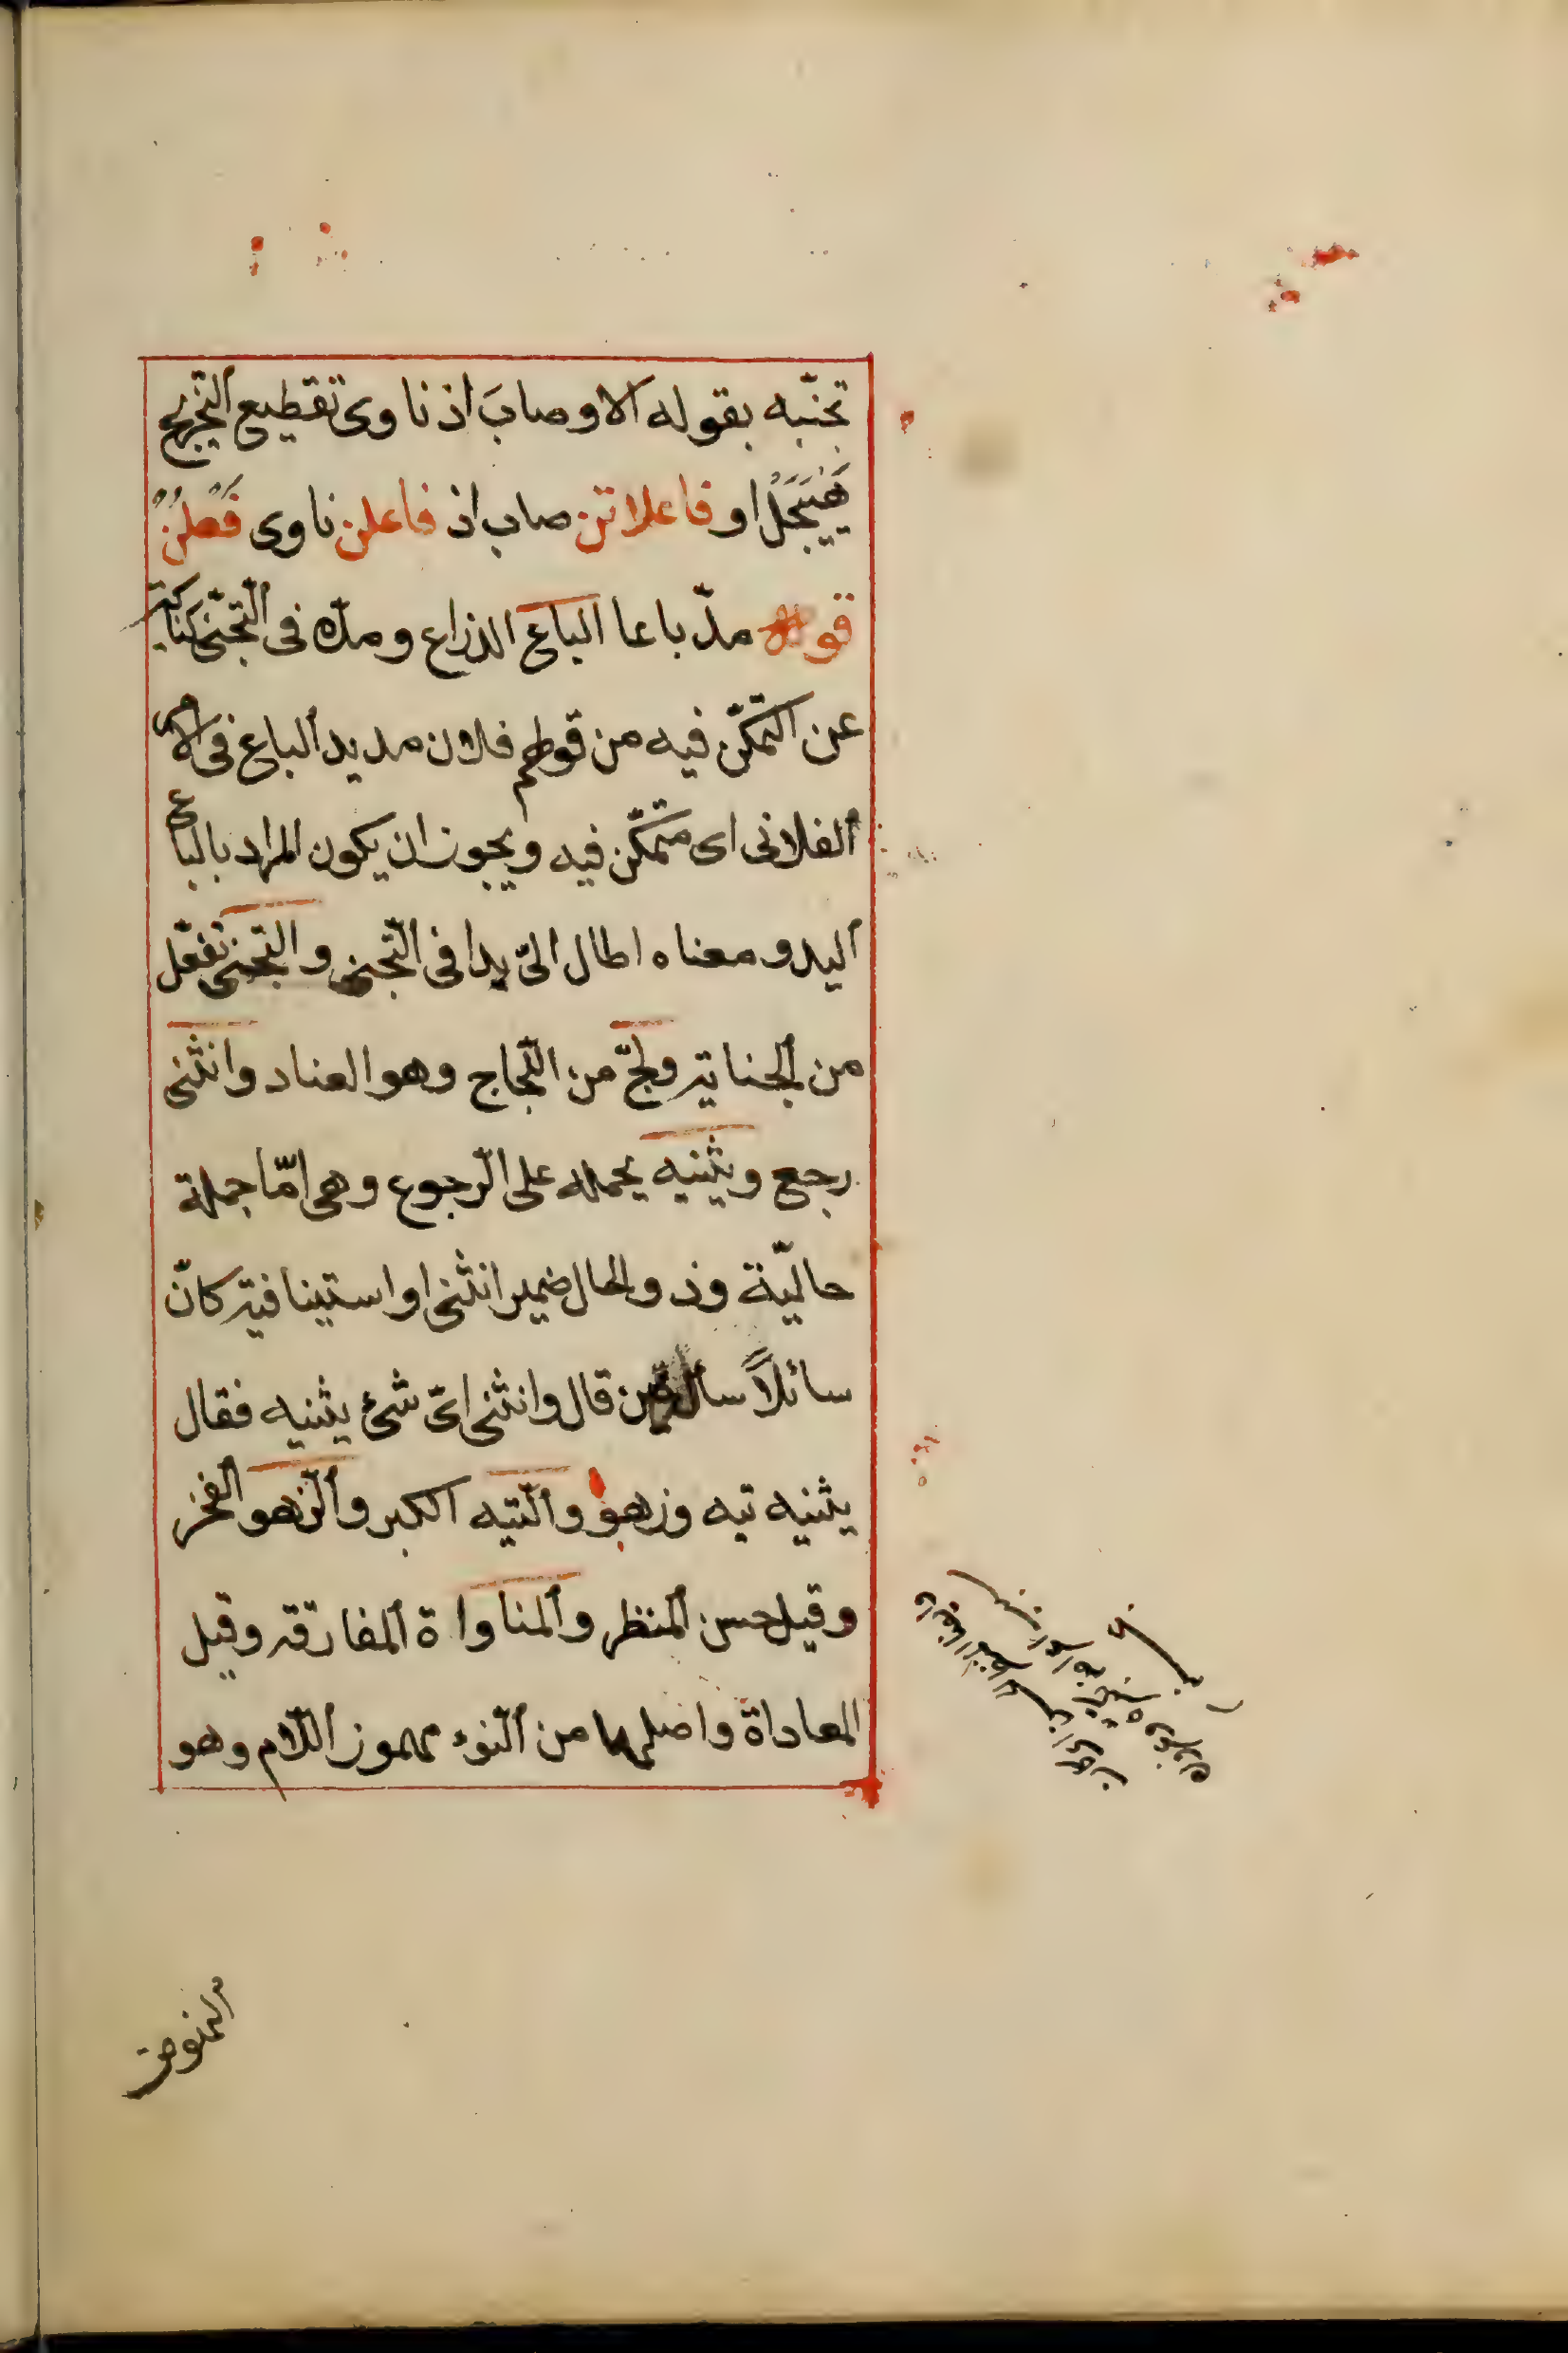 تجنبه بقوله الا وصابَ اذ ناوى تقطيع التخريج
او فاعلاتن صاب اذ فاعلن ناوى فَعلن
قوله مدّ باعا الباع الذراع ومدّه فى التجنّى كناية
عن التمكّن فيه من قولهم فلان مديد الباع فى الامر
الفلانى اى متمكّن فيه ويجوز ان يكون المراد بالباع
اليد ومعناه اطال الىّ يدا فى التّجنى والتجنى تفعّل
من الجناية ولجّ من اللّجاج وهو العناد وانثنى
رجع ويثنيه يحمله على الرّجوع وهى امّا جملة
حاليّة وذو الحال ضمير انثنى او استينافية كانّ
سائلاً سأل من قال وانثنى اىّ شئ يثنيه فقال
يثنيه تيه وزهو والتّيه الكبر والزهو الفخر
وقيل حسن المنظر والمناواة المفارقة وقيل
المعاداة واصلها من النّوء مهموز اللّام وهو